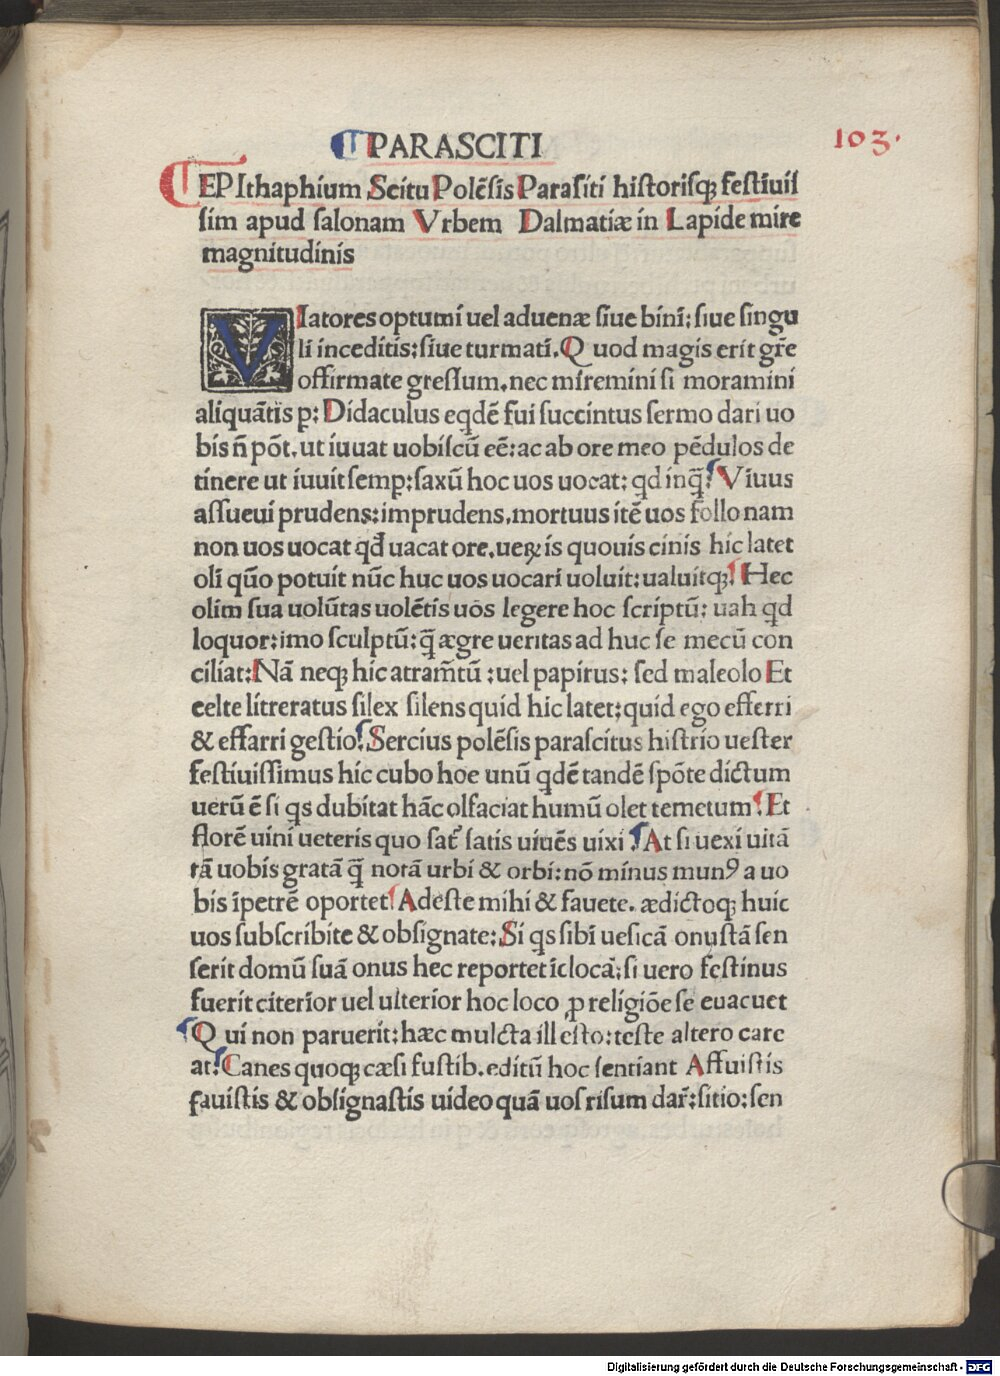 PARASCITI
103.
EPIthaphium Scitu Polēsis Parasiti historisqꝫ festiuis
sim apud salonam Vrbem Dalmatiæ in Lapide mire
magnitudinis
VIatores optumi uel aduenæ siue bini: siue singu
li inceditis: siue turmati. Q uod magis erit gr̄e
offirmate gressum. nec miremini si moramini
aliquātis ꝑ: Didaculus eqdē fui succintus sermo dari uo
bis n̄ pōt. ut iuuat uobiscū eē: ac ab ore meo pēdulos de
tinere ut iuuit semꝑ: saxū hoc uos uocat: qd inq̄: Viuus
assueui prudens: imprudens. mortuus itē uos follo nam
non uos uocat qđ uacat ore. ueꝝ is quouis cinis hic latet
oli quo potuit nūc huc uos uocari uoluit: ualuitqꝫ: Hec
olim sua uolūtas uolētis uōs legere hoc scriptū: uah qd
loquor: imo sculptū: q̄ ægre ueritas ad huc se mecū con
ciliat: Nā neqꝫ hic atram̄tū : uel papirus: sed maleolo Et
celte litreratus silex silens quid hic latet: quid ego efferri
& effarri gestio: Sercius polēsis parascitus histrio uester
festiuissimus hic cubo hoe unū qdē tandē spōte dictum
uerū ē si qs dubitat hāc olfaciat humū olet temetum: Et
florē uini ueteris quo sat̉ satis uiuēs uixi : At si uexi uitā
tā uobis gratā q̄ notā urbi & orbi: nō minus munꝰ a uo
bis īpetrē oportet: Adeste mihi & fauete. ædictoqꝫ huic
uos subscribite & obsignate: Si qs sibi uesicā onustā sen
serit domū suā onus hec reportet īclocā: si uero festinus
fuerit citerior uel ulterior hoc loco ꝓ religiōe se euacuet
Q ui non paruerit: hæc mulcta ill esto: teste altero care
at: Canes quoqꝫ cæsi fustib. editū hoc sentiant Affuistis
fauistis & obsignastis uideo quā uos risum dar̄: sitio: sen
Digitalisierung gefördert durch die Deutsche Forschungsgemeinschaft - DFG